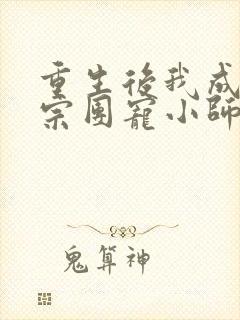 重生後我成
宗團寵小師
鬼算神